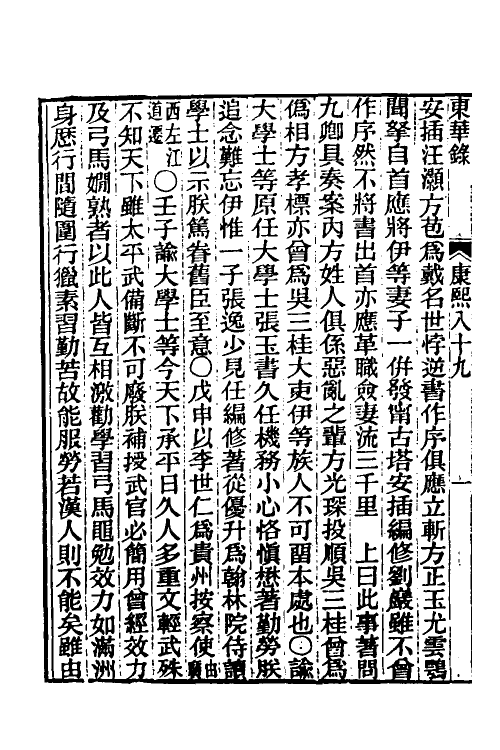 東華錄 康熙八十九 一
安插汪灝方苞為戴名世悖逆書作序俱應立斬方正玉尤雲鶚
聞拏自首應將伊等妻子一併發甯古塔安插編修劉巖雖不曾
作序然不將書出首亦應革職僉妻流三千里 上曰此事著問
九卿具奏案內方姓人俱係惡亂之輩方光琛投順吳三桂曾為
偽相方孝標亦曾為吳三桂大吏伊等族人不可留本處也○諭
大學士等原任大學士張玉書久任機務小心恪慎懋著勤勞朕
追念難忘伊惟一子張逸少見任編修著從優升為翰林院侍讀
學士以示朕篤眷舊臣至意○戊申以李世仁為貴州按察使由廣
西左江道遷○壬子諭大學士等今天下承平日久人多重文輕武殊
不知天下雖太平武備斷不可廢朕補授武官必簡用曾經效力
及弓馬嫺熟者以此人皆互相激勸學習弓馬黽勉效力如滿洲
身歷行間隨圍行獵素習勤苦故能服勞若漢人則不能矣雖由